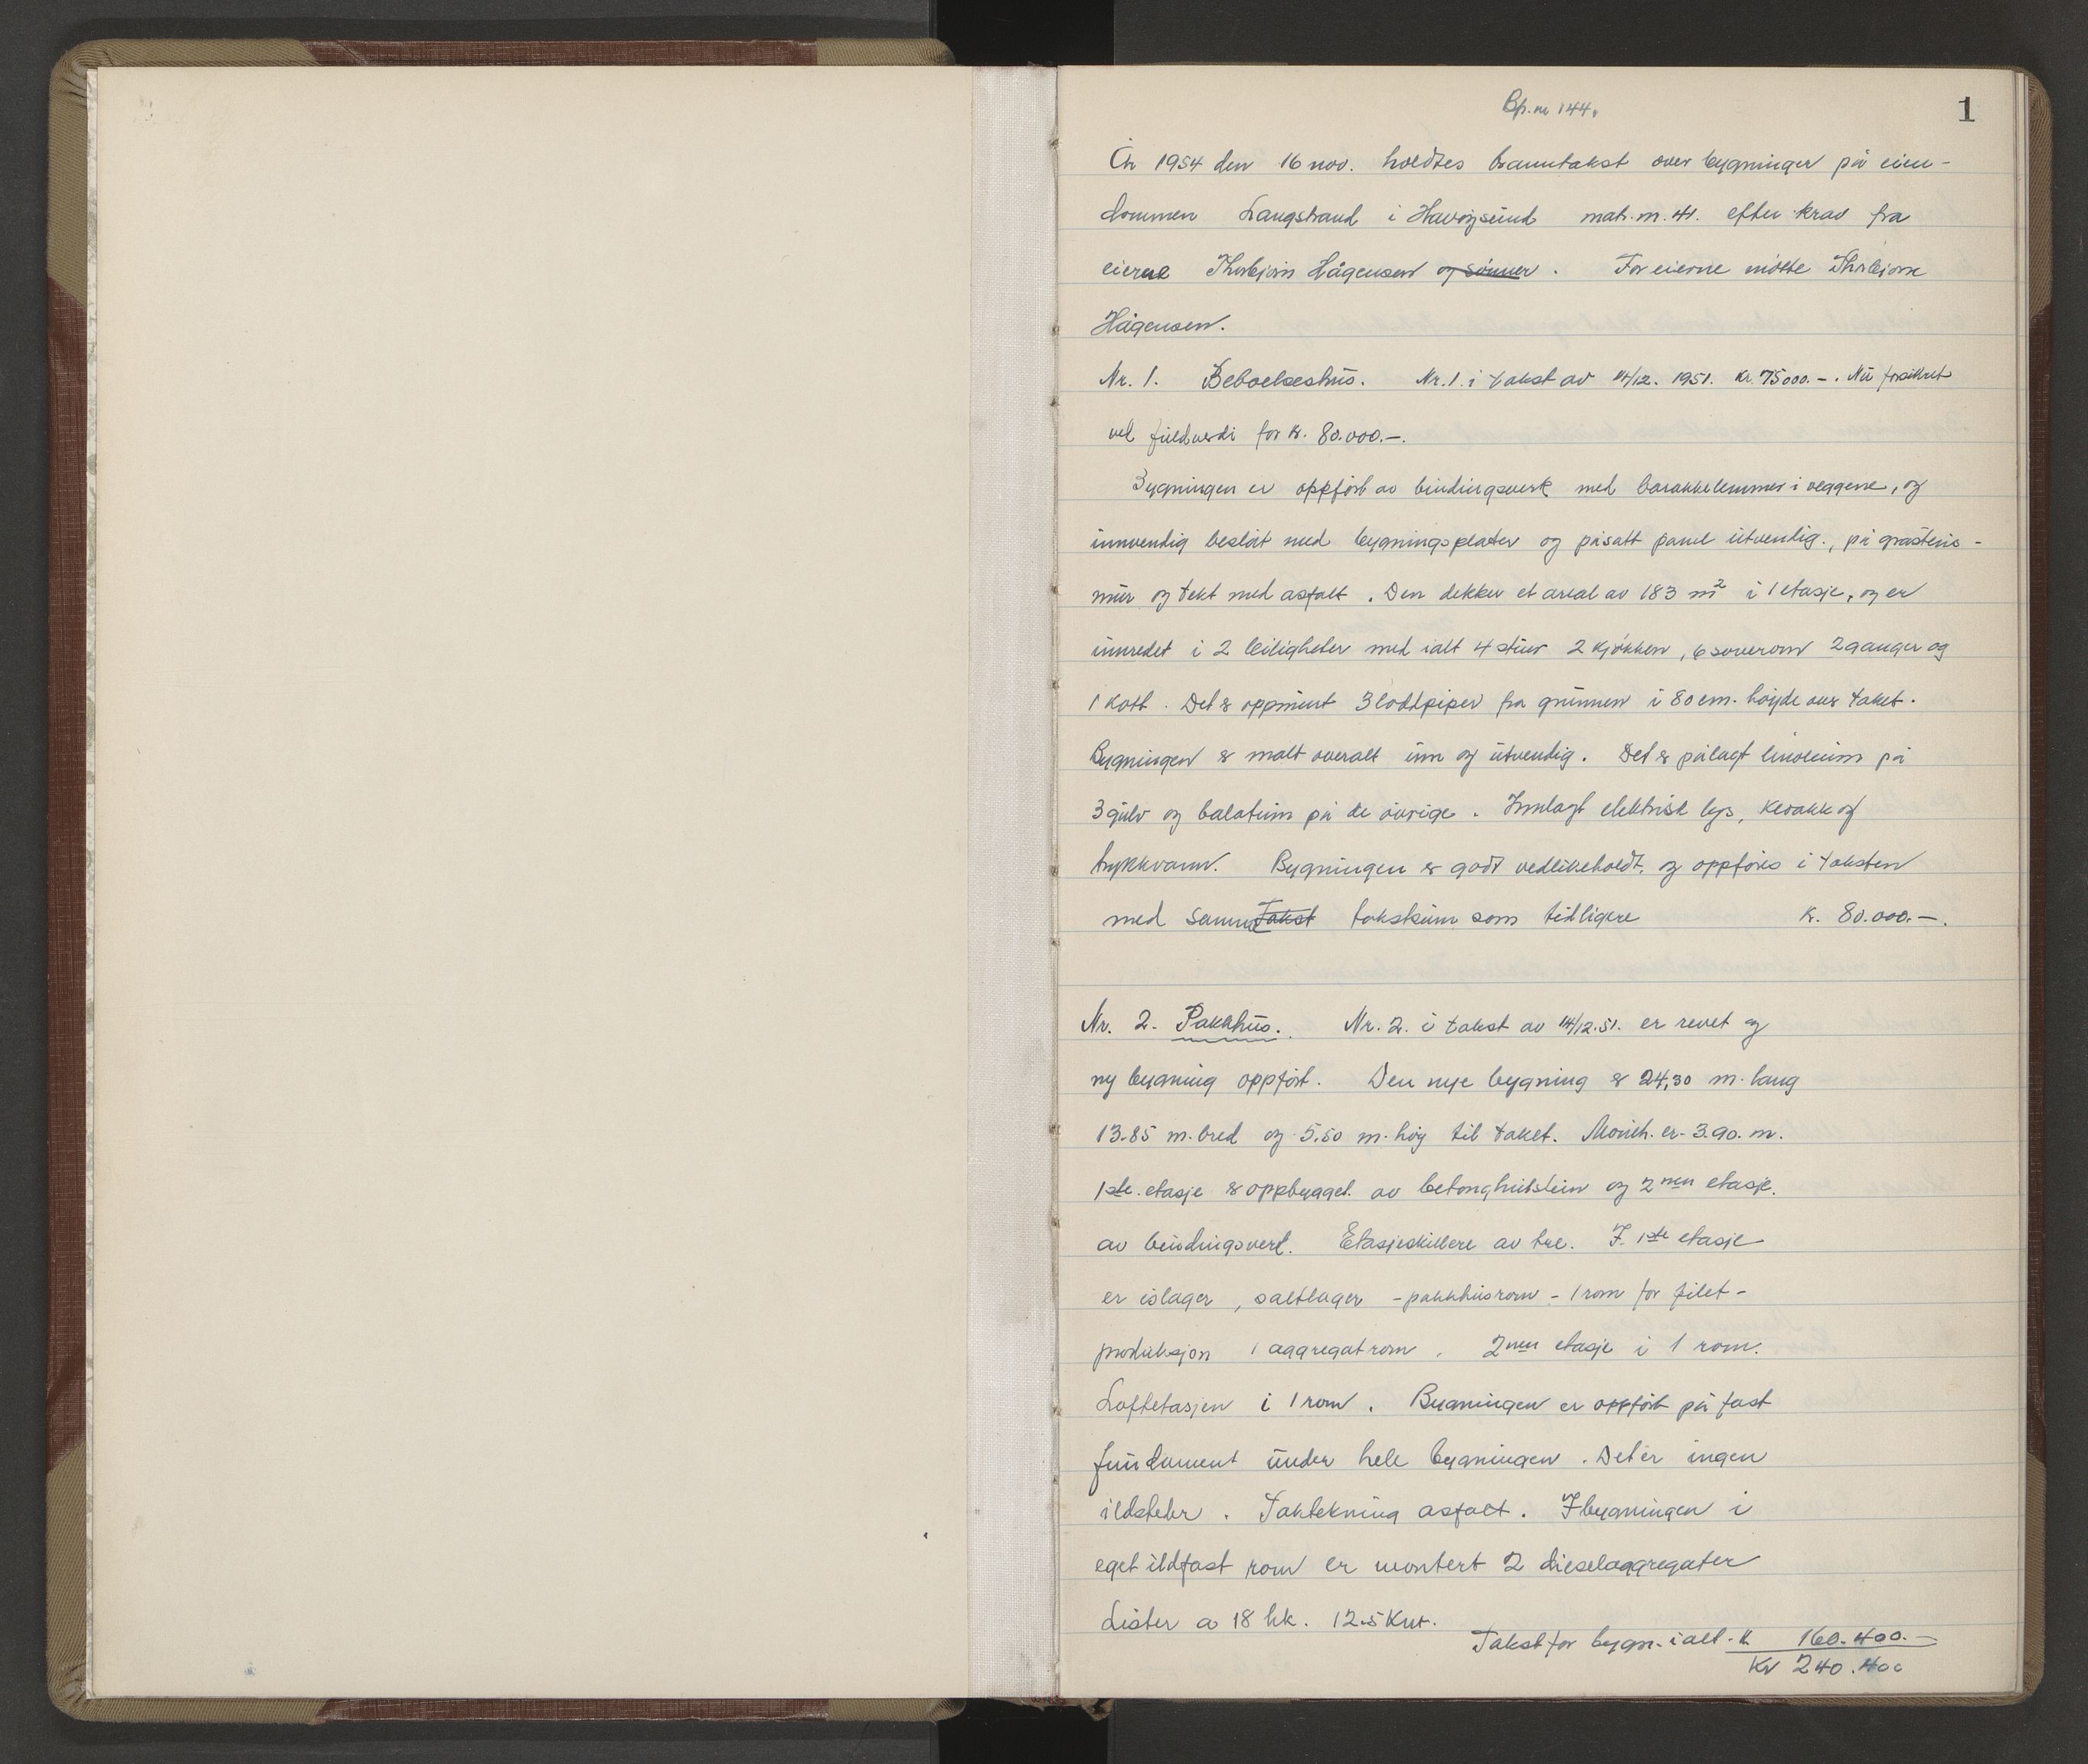 Bp. nr 144.
1
År 1954 den 16 nov. holdtes branntakst over bygninger på eien-
dommen Langstrand i Havøysund matr. nr. 41. efter krav fra
eierne Thorbjørn Hågensen og sønner. For eierne møtte Thorbjørn
Hågensen.
Nr. 1. Beboelseshus. Nr. 1. i takst av 14/12. 1951. kr. 75000.-. Nu forsikret
vel fuldverdi for kr. 80.000.-.
Bygningen er oppført av bindingsverk med barakkelemmer i veggene, og
innvendig beslått med bygningsplater og påsatt panel utvendig., på gråsteins-
mur og tekt med asfalt. Den dekker et areal av 183 m² i 1 etasje, og er
innredet i 2 leiligheter med ialt 4 stuer 2 kjøkken, 6 soverom 2 ganger og
1 kott. Det er oppmurt 3 loddpiper fra grunnen i 80 cm. høyde over taket.
Bygningen er malt overalt inn og utvendig. Det er pålagt linoleum på
3 gulv og balatum på de øvrige. Innlagt elektrisk lys, kloakk og
trykkvann. Bygningen er godt vedlikeholdt, og oppføres i taksten
med samme takst takstsum som tidligere kr. 80.000.-.
Nr. 2. Pakkhus. Nr. 2. i takst av 14/12.51. er revet og
ny bygning oppført. Den nye bygning er 24,30 m. lang
13.85 m. bred og 5.50 m. høy til taket. Møneh. er 3.90. m.
1ste. etasje er oppbygget av betonghulstein og 2nen etasje.
av bindingsverk. Etasjeskillere av tre. I 1ste etasje
er islager, saltlager - pakkhusrom - 1 rom for filet-
produksjon 1 aggregatrom. 2nen etasje i 1 rom.
Loftetasjen i 1 rom. Bygningen er oppført på fast
fundament under hele bygningen. Det er ingen
ildsteder. Taktekning asfalt. I bygningen i
eget ildfast rom er montert 2 dieselaggregater
Lister a 18 hk. 12.5 Kw.
Takst for bygn. ialt. k 160.400.-
Kr 240.400